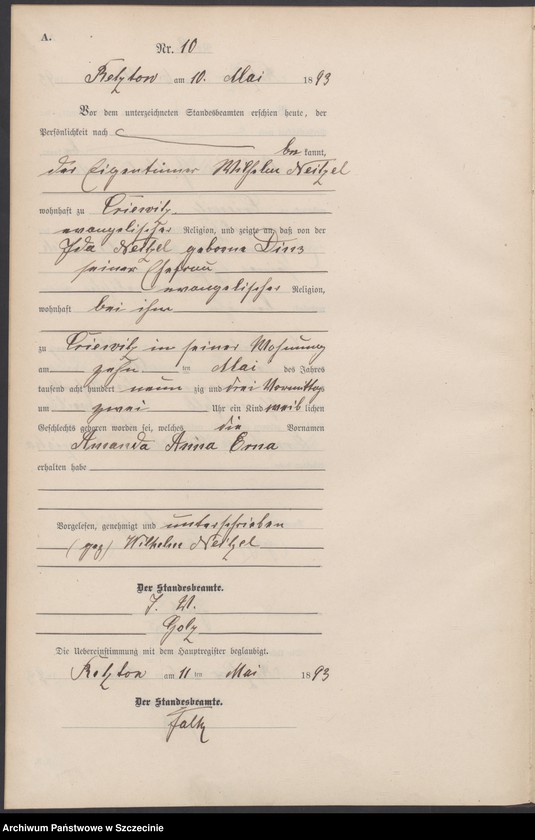 A.
Nr. 10
Retzton am 10. Mai 1893
Vor dem unterzeichneten Standesbeamten erschien heute, der
Persönlichkeit nach
be kannt,
der Eigentümer Wilhelm Neitzel
wohnhaft zu Criewitz
evangelischer Religion, und zeigte an, daß von der
Ida Neitzel geborne
seiner Ehefrau
evangelischer Religion,
wohnhaft bei ihm
zu Criewitz in seiner Wohnung
am zehn ten Mai des Jahres
tausend acht hundert neun zig und drei Vormittags
um zwei Uhr ein Kind weib lichen
Geschlechts geboren worden sei, welches die Vornamen
Amanda Anna Erna
erhalten habe
Vorgelesen, genehmigt und unterschrieben
(gez) Wilhelm Neitzel
Der Standesbeamte.
J. V.
Golz
Die Uebereinstimmung mit dem Hauptregister beglaubigt.
Retzton am 11 ten Mai 1893
Der Standesbeamte.
Falk
Archiwum Państwowe w Szczecinie